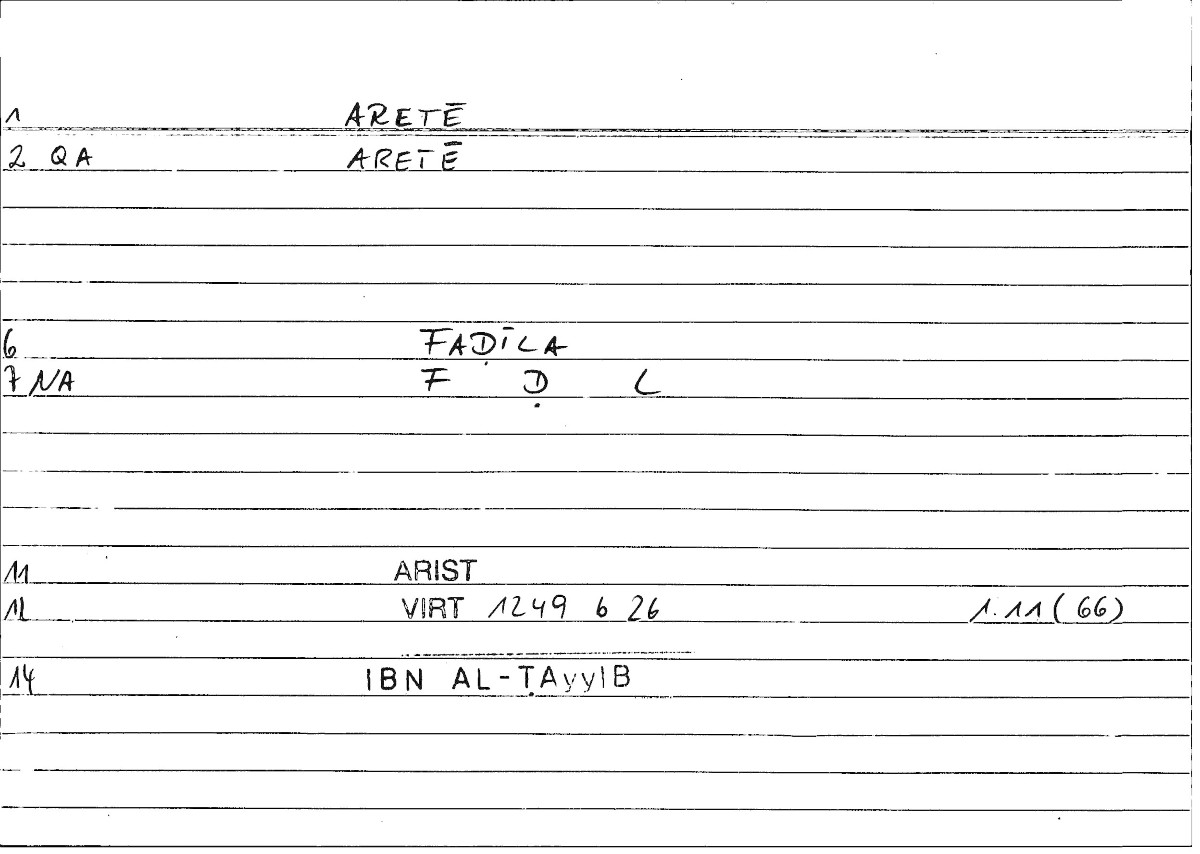 1 ARETĒ
2 QA ARETĒ
6 FAḌĪLA
7 NA F Ḍ L
11 ARIST
12 VIRT 1249 6 26 1.11 (66)
14 IBN AL-ṬAyyIB